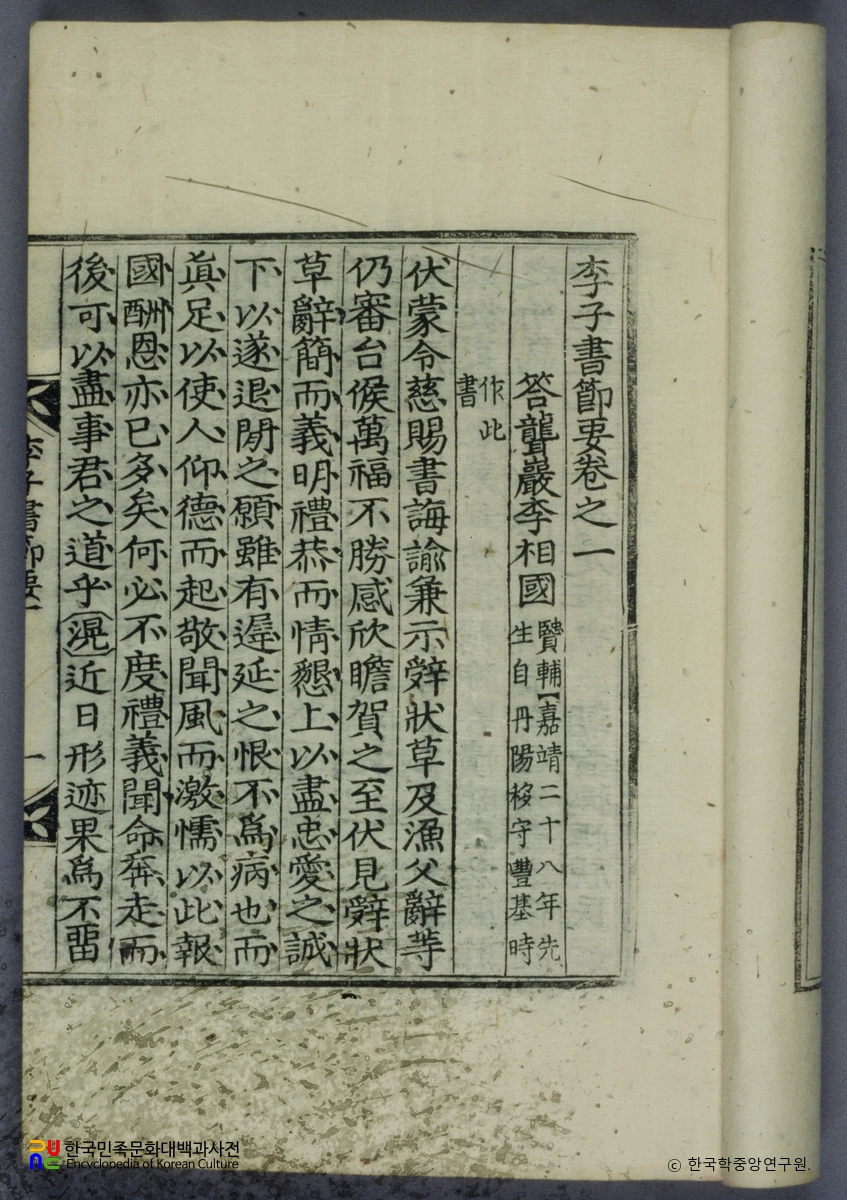 李子書節要卷之一
答聾巖李相國 賢輔【嘉靖二十八年先
生自丹陽移守豐基時
作此
書
伏蒙令慈賜書誨諭兼示辤狀草及漁父辭等
仍審台候萬福不勝感欣瞻賀之至伏見辤狀
草辭簡而義明禮恭而情懇上以盡忠愛之誠
下以遂退閒之願雖有遲延之恨不爲病也而
眞足以使人仰德而起敬聞風而激懦以此報
國酬恩亦已多矣何必不度禮義聞命奔走而
後可以盡事君之道乎滉近日形迹果爲不畱
李子書節要
一
한국민족문화대백과사전
Encyclopedia of Korean Culture
© 한국학중앙연구원.